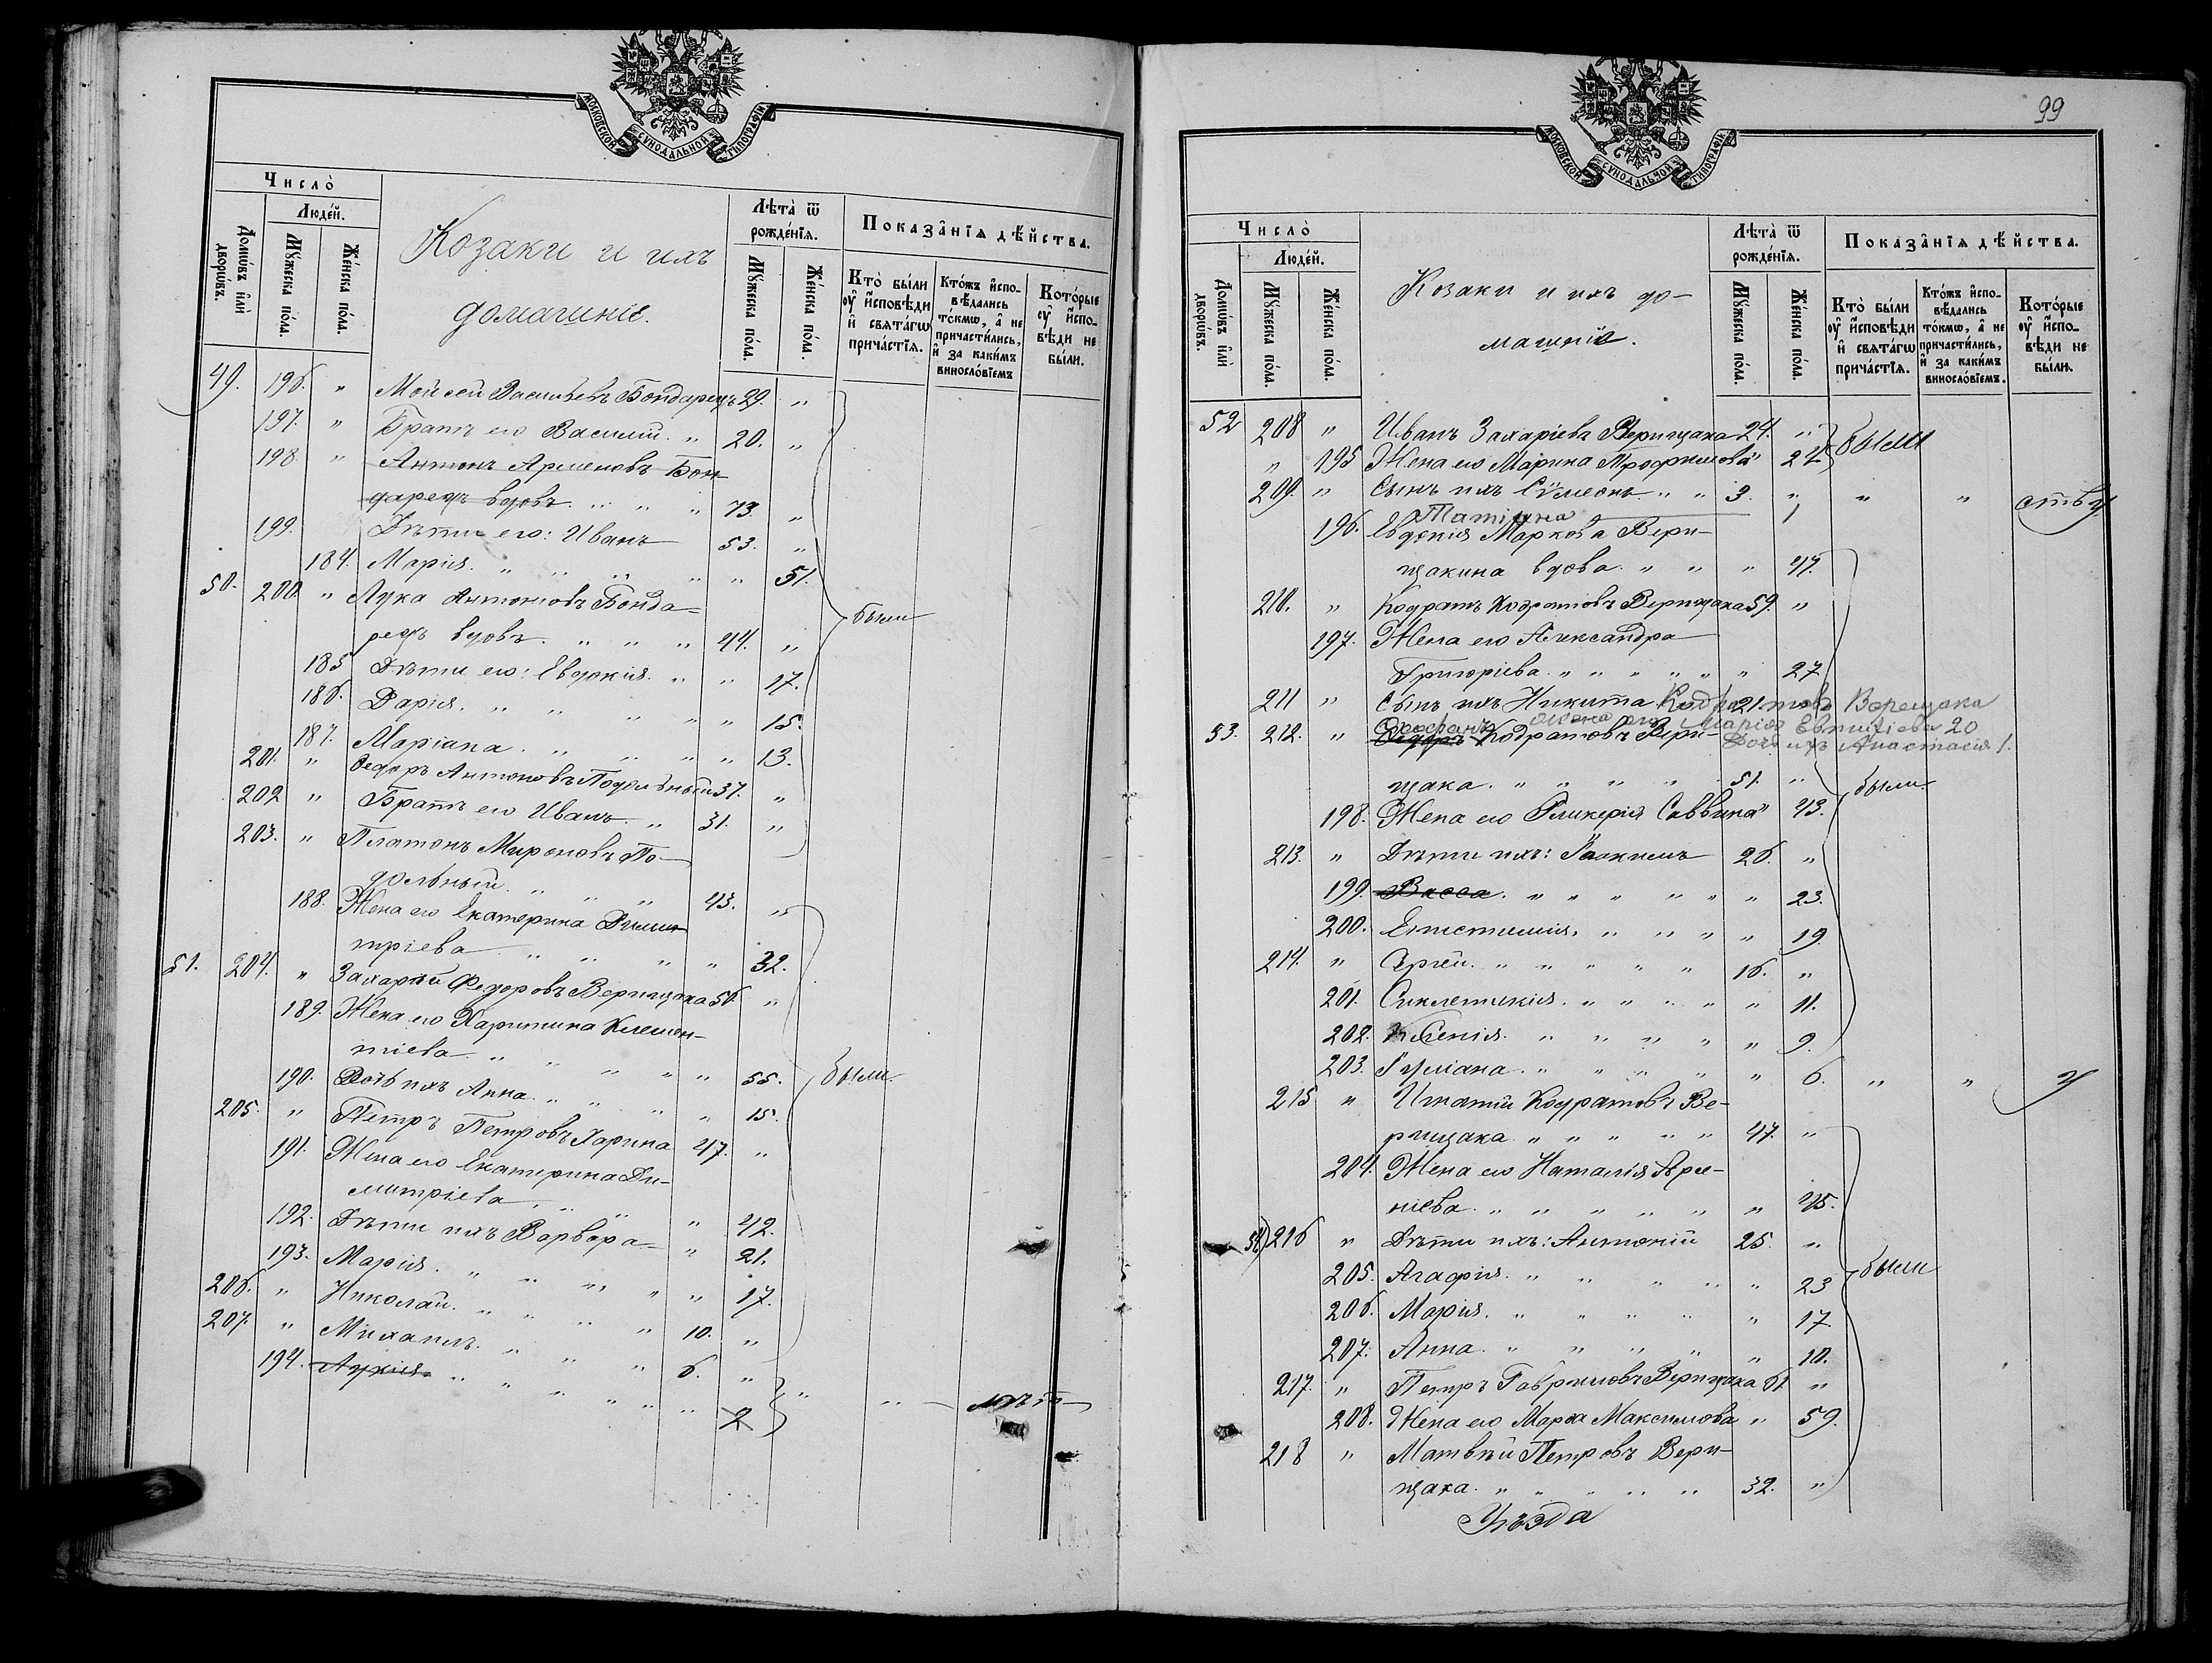 МОСКОВСКОЙ СУНОДАЛЬНОЙ ТИПОГРАФІИ
Число̀
Домѡ́въ и҆лѝ дворѡ́въ.
Люде́й.
Мꙋ́жеска по́ла.
Же́нска по́ла.
Козаки и ихъ
домашніе.
Лѣта̀ ѿ рожде́нїѧ.
Мꙋ́жеска по́ла.
Же́нска по́ла.
Показа̂нїѧ дѣ́йства.
Кто̀ бы́ли ᲂу҆ и҆сповѣди и҆ свѧта́гѡ прича́стїѧ.
Кто́жъ и҆сповѣдались то́кмѡ, а҆ не причасти́лись, и҆ за каки́мъ винослові́емъ
Кото́рые ᲂу҆ и҆сповѣди не бы́ли.
49. 196. " Мойсей Васильевъ Бондарецъ 29. "
197. " Братъ его Василій. " 20. "
198 " Антонъ Артемовъ Бон-
дарецъ вдовъ. " " " 73. "
199. Дѣти его: Иванъ 53. "
184. Марія. " " " " " 51.
50. 200. " Лука Антоновъ Бонда-
рецъ вдовъ. " " " 44. "
были
185 Дѣти его: Евдокія. " " 17.
186. Дарія. " " " " " 15.
187. Маріана. " " " " 13.
201. " Ѳедоръ Антоновъ Подольный 37. "
202 " Братъ его Иванъ. " 31. "
203. " Платонъ Мироновъ По-
дольный. " " " 43. "
188. Жена его Екатерина Дими-
тріева " " " " 32.
51. 204. " Захарій Федоровъ Верищака 56 "
189. Жена его Харитина Клемен-
тіева " " " " 55.
были
190. Дочь ихъ Анна. " " " 15.
205. " Петръ Петровъ Харина 47. "
191. Жена его Екатерина Ди-
митріева. " " " 42.
192. Дѣти ихъ Варвара " 21.
193. Марія. " " " " " 17.
206. " Николай. " " " " 10. "
207. " Михаилъ. " " " 6. "
194. Лукія. " " " " " 2 " "
99
МОСКОВСКОЙ СУНОДАЛЬНОЙ ТИПОГРАФІИ
Число̀
Домѡ́въ и҆лѝ дворѡ́въ.
Люде́й.
Мꙋ́жеска по́ла.
Же́нска по́ла.
Козаки и ихъ до-
машніе.
Лѣта̀ ѿ рожде́нїѧ.
Мꙋ́жеска по́ла.
Же́нска по́ла.
Показа̂нїѧ дѣ́йства.
Кто̀ бы́ли ᲂу҆ и҆сповѣди и҆ свѧта́гѡ прича́стїѧ.
Кто́жъ и҆сповѣдались то́кмѡ, а҆ не причасти́лись, и҆ за каки́мъ винослові́емъ.
Кото́рые ᲂу҆ и҆сповѣди не бы́ли.
52 208 " Иванъ Захаріевъ Верищака 24. " были
" 195 Жена его Марина Трофимова " 24
209. " Сынъ ихъ Сѵмеонъ " " 3. " " "
Татіана 1
196. Евдокія Маркова Вери-
щакина вдова. " " " 47.
210. " Кодратъ Кодратовъ Верищака 59. "
197. Жена его Александра
Григоріева. " " " " " " 27
211 " Сынъ ихъ Никита Кодратовъ 21. Верещака
Жена его Марія Евтихіева 20
Дочь ихъ Анастасія 1.
Стефанъ
53. 212. " Ѳедоръ Кодратовъ Вери-
щака. " " " " " 51. "
были.
198. Жена его Гликерія Саввина " 43.
213. " Дѣти ихъ: Іоакимъ 26. "
199. Васса. " " " " " " 23.
200. Епистимія. " " " " 19.
214. " Сергѣй. " " " " " 16. "
201. Сикленикія. " " " " " 11.
202. Ксенія. " " " " " 9.
203. Іуліана. " " " " " 6. " "
215 " Игнатій Кодратовъ Ве-
рищака " " " " " 47. "
204. Жена его Наталія Арсе-
ніева. " " " " " " 45.
54) 216 " Дѣти ихъ: Антоній 25. "
были
205. Агафія. " " " " " 23
206. Марія. " " " " " 17.
207. Анна. " " " " " 10.
217. " Петръ Гавриловъ Верищака 61 "
208. Жена его Марѳа Максимова " 59.
218 " Матвѣй Петровъ Вери-
щака. " " " " " 32. "
Уѣзда